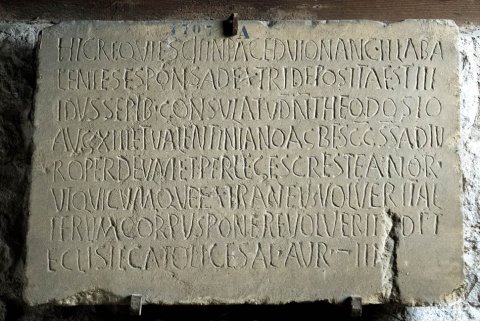 HIC REQVIESCIT IN PACE DVIONA NC·ILLA BA
LENTES ESPONSA DEXTRI DEPOSITA EST IIII
IDVS SEPTB·CONSVLATV DN THEODOSIO
AVG XIII ET VALENTINIANO AC BES CCSS ADIV
RO PER DEVM ET PER LEGES CRESTEANOR·
VT QVICVMQVE EXTRANEVS VOLVERIT AL
TERVM CORPVS PONERE VOLVERIT DET
ECLISIE CATOLICE SAL·AVR·III